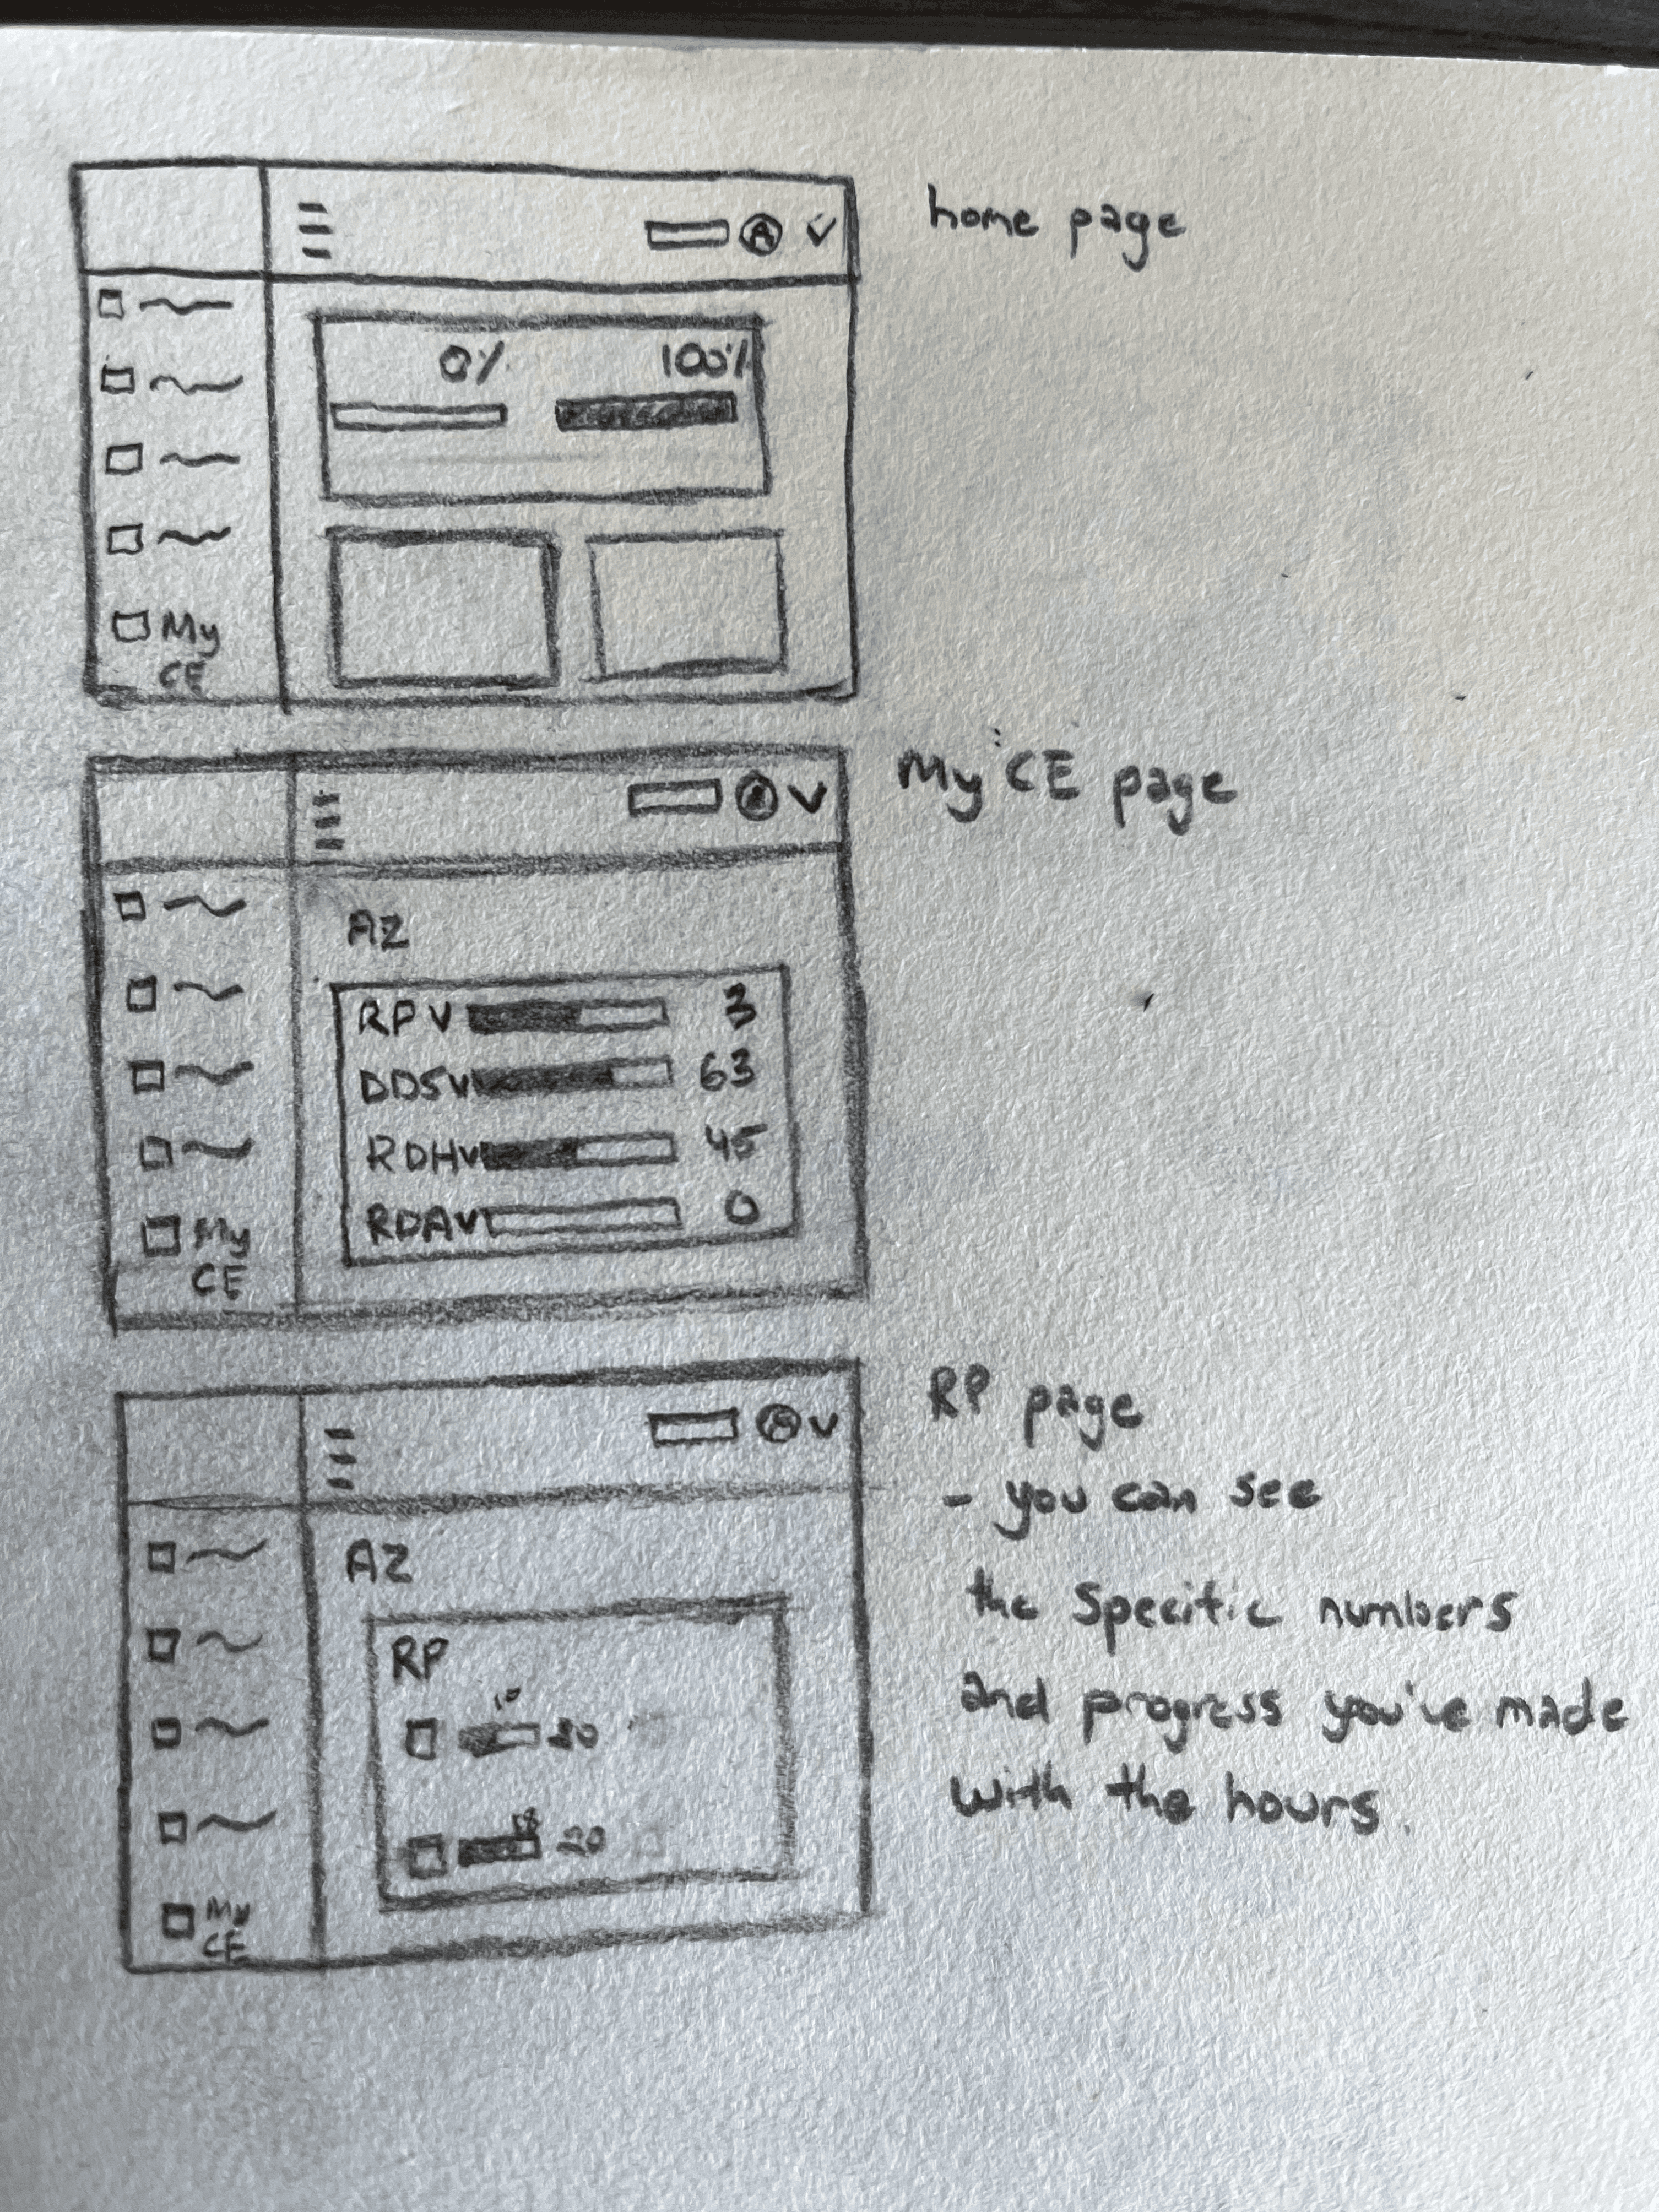 home page
A
0% 100%
My
CE
My CE page
A
AZ
RP 3
DDS 63
RDH 45
RDA 0
My
CE
RP page
A
- you can see
the specific numbers
and progress you've made
with the hours.
AZ
RP
10
18
20
My
CE